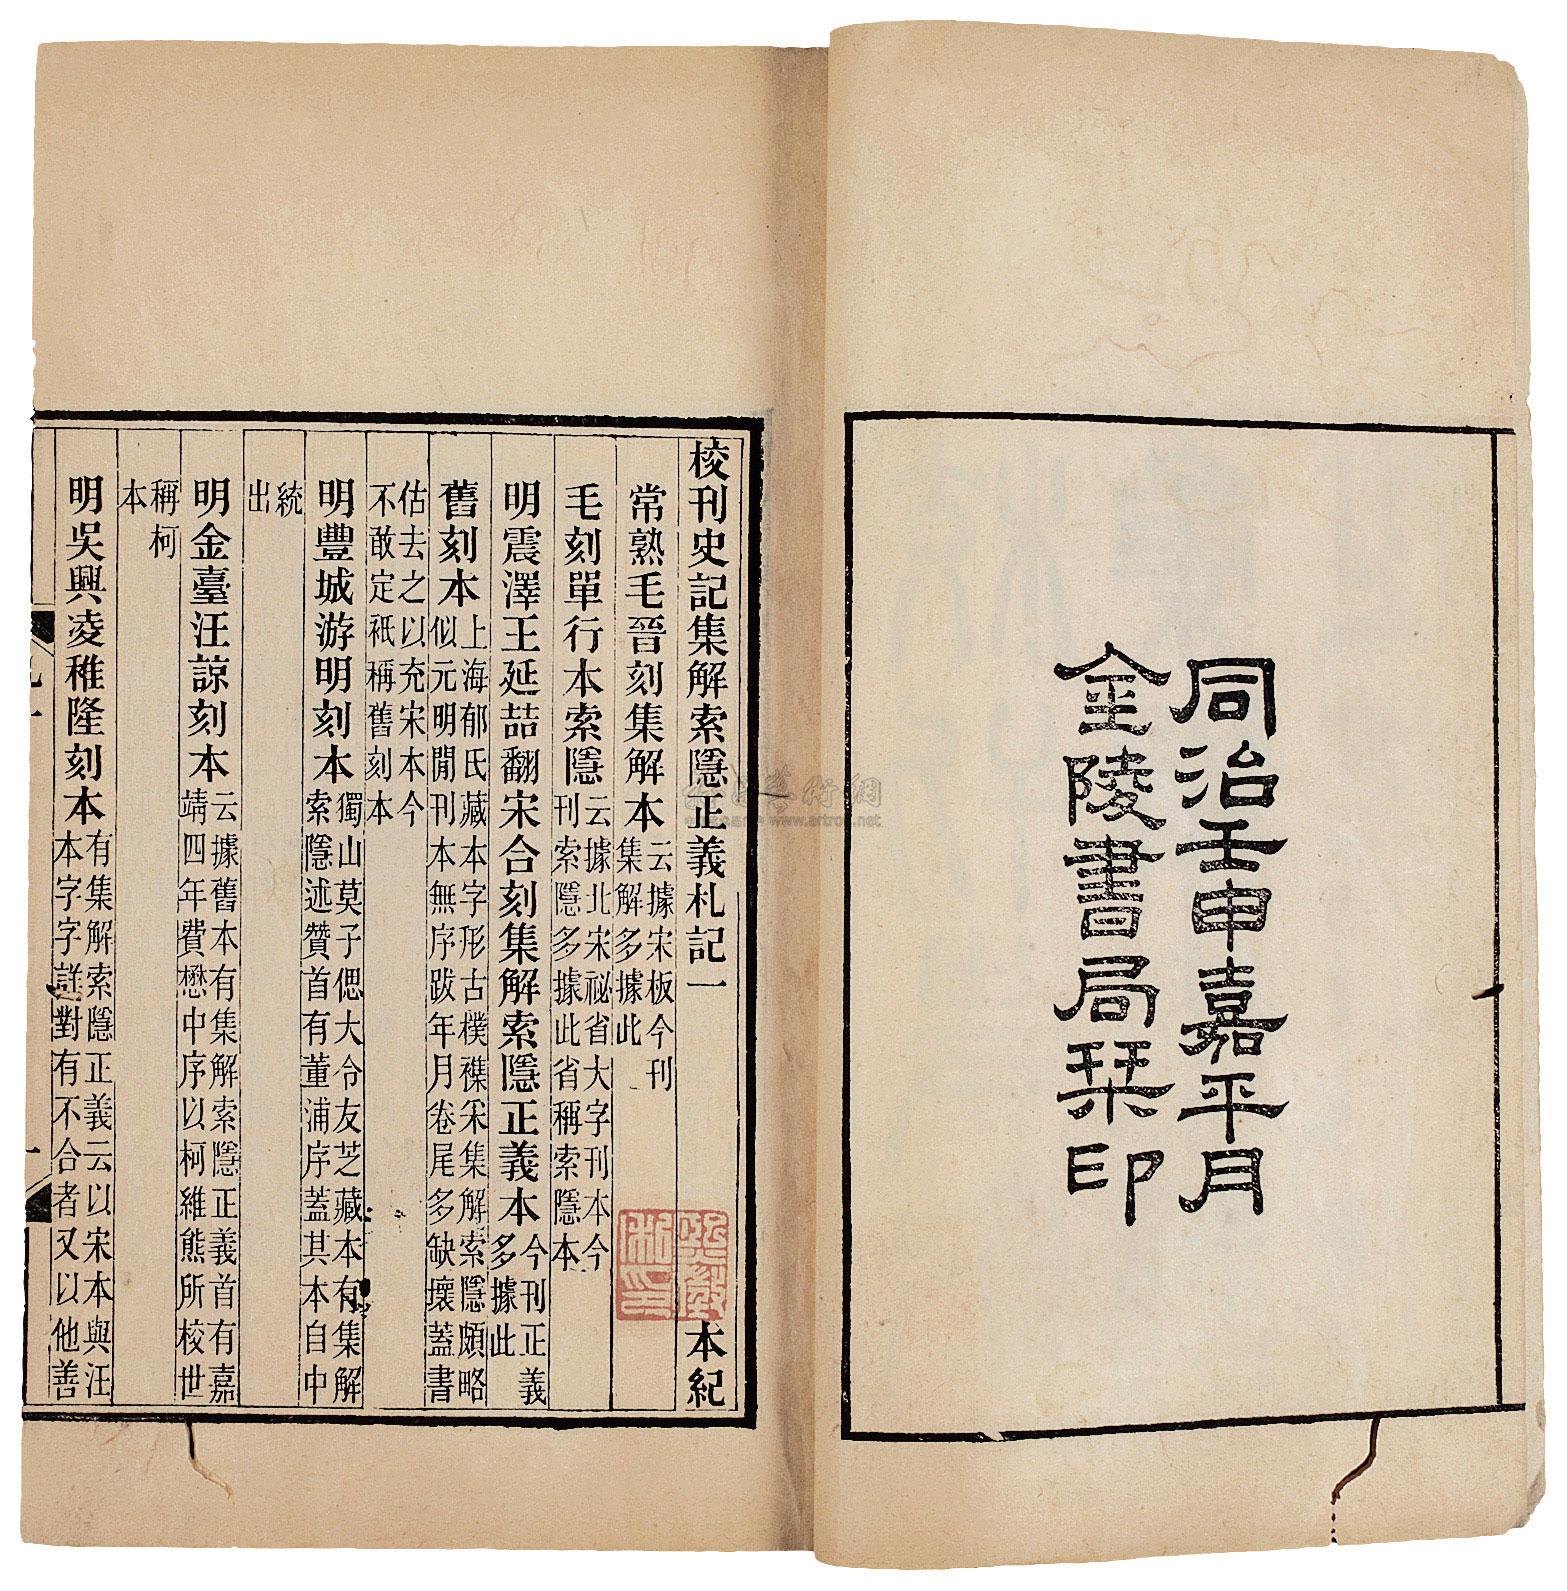 同治壬申嘉平月
金陵書局栞印
校刊史記集解索隱正義札記一
本紀
常熟毛晉刻集解本云據宋板今刊
集解多據此
毛刻單行本索隱云據北宋祕省大字刊本今
刊索隱多據此省稱索隱本
明震澤王延喆翻宋合刻集解索隱正義本今刊正義
多據此
舊刻本上海郁氏藏本字形古樸襍采集解索隱頗略
似元明閒刊本無序跋年月卷尾多缺壞蓋書
估去之以充宋本今
不敢定衹稱舊刻本
明豐城游明刻本獨山莫子偲大令友芝藏本有集解
索隱述贊首有董浦序蓋其本自中
統
出
明金臺汪諒刻本云據舊本有集解索隱正義首有嘉
靖四年費懋中序以柯維熊所校世
稱柯
本
明吳興凌稚隆刻本有集解索隱正義云以宋本與汪
本字字讎對有不合者又以他善
www.artron.net